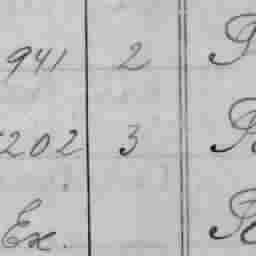 941 2
202 3
Ex.